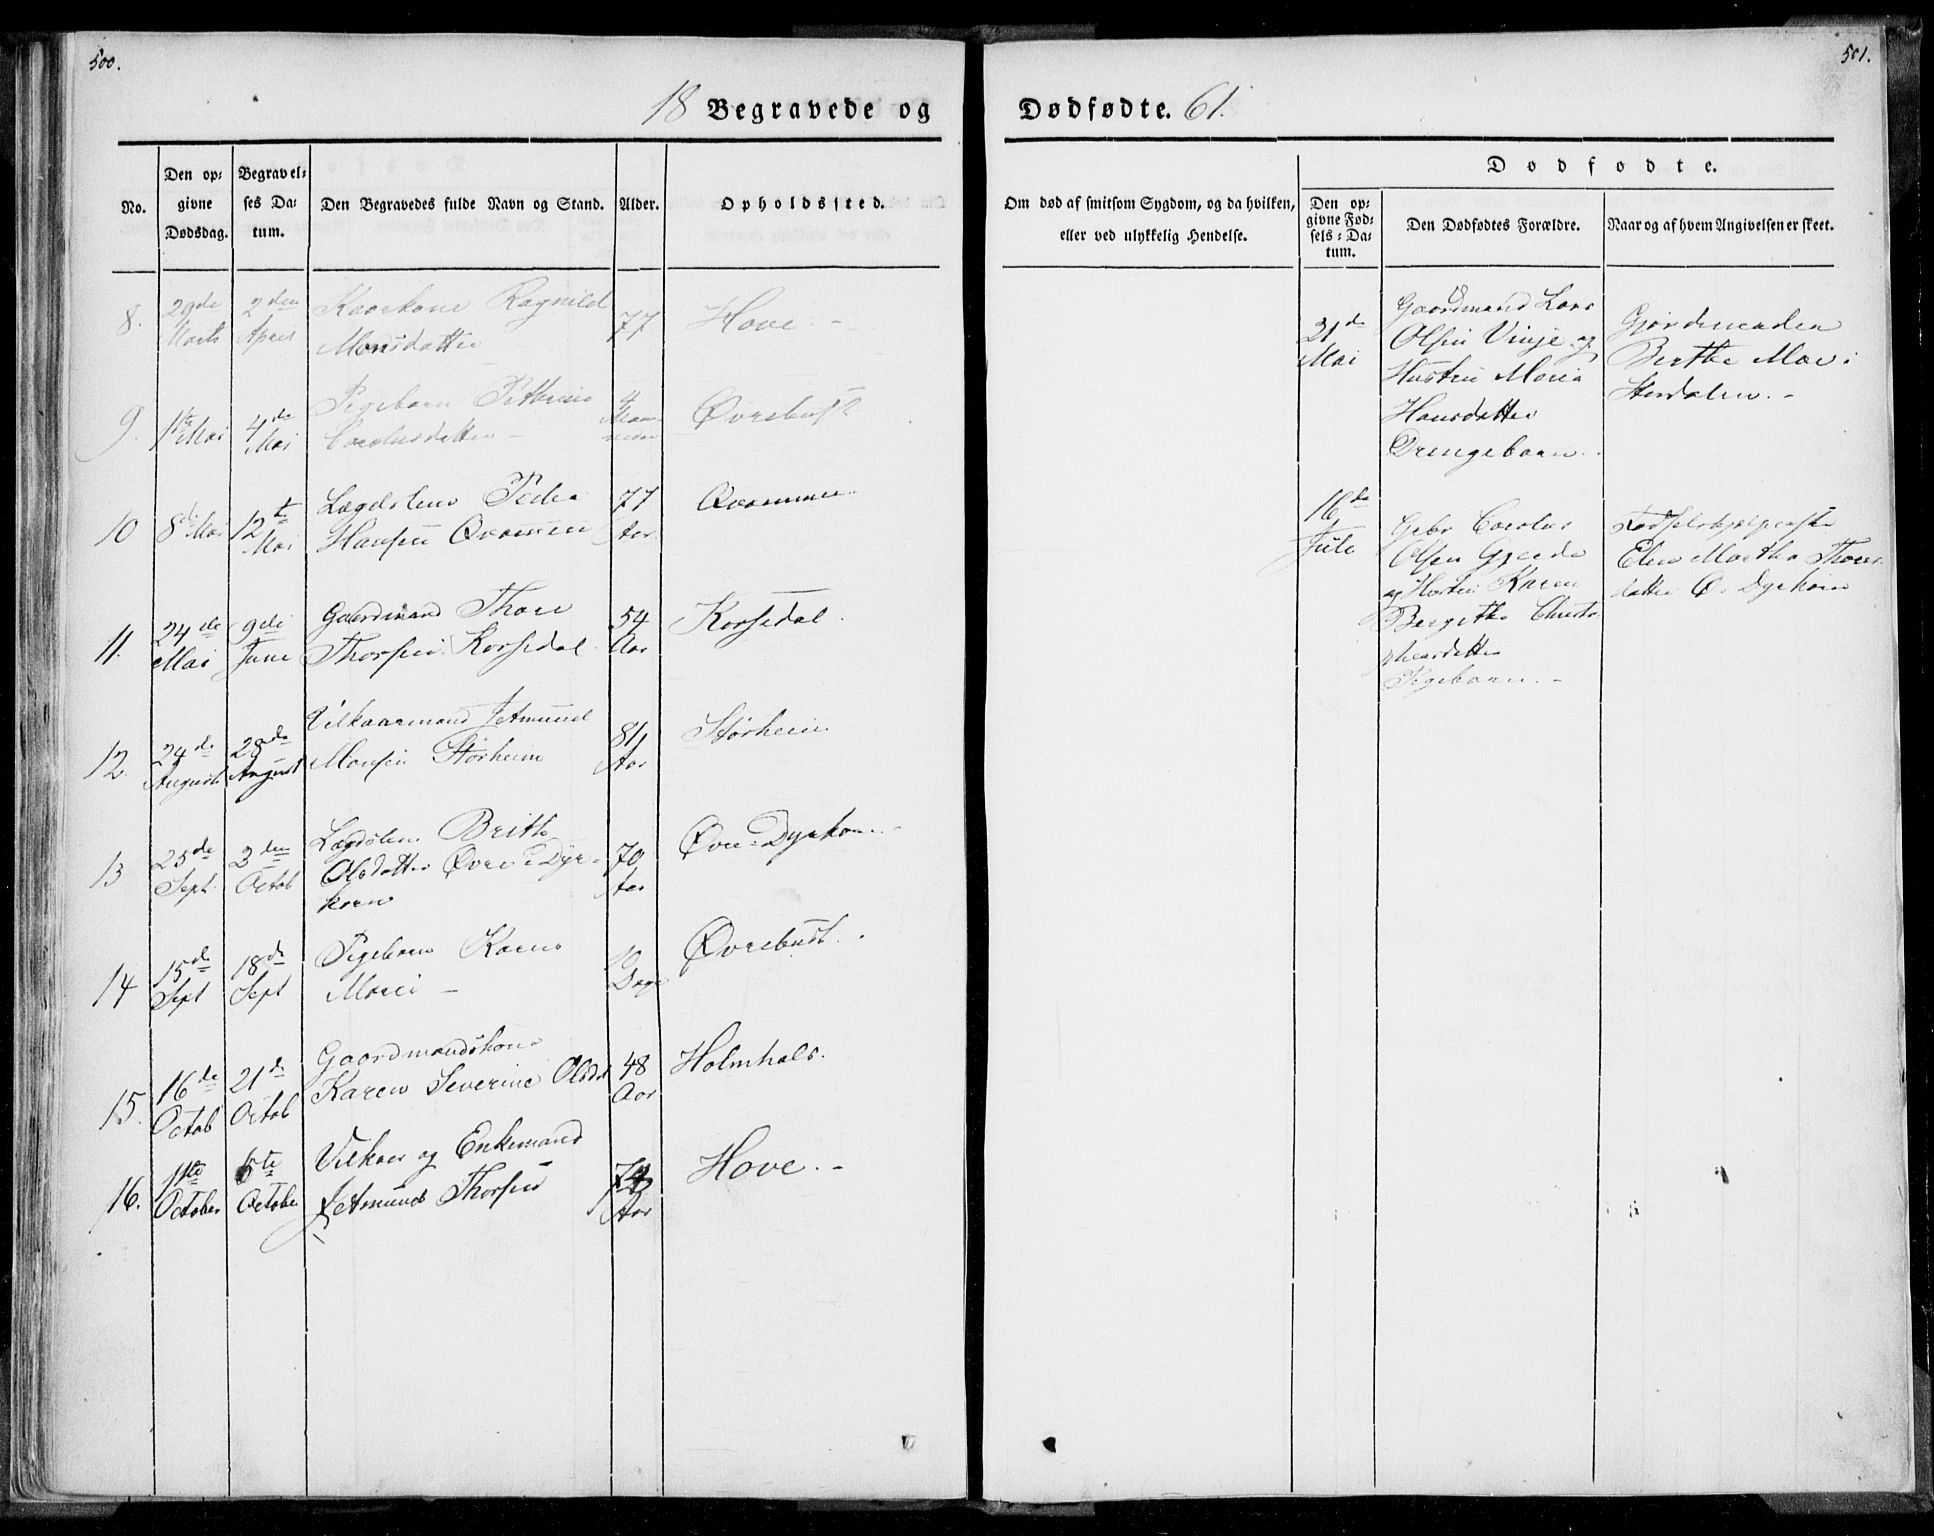 500.
18 Begravede og
No.
Den op-
givne
Dødsdag.
Begravel-
ses Da-
tum.
Den Begravedes fulde Navn og Stand.
Alder.
Opholdssted.
8.
29de
Marts
2den
April
Kaarkone Ragnild
Monsdatter
77
Hove. -
9.
1ste Mai
4de
Mai
Pigebarn Pethrine
Carolusdatter -
4
Maa-
neder
Øvrebust
10
8de Mai
12te
Mai
Lægdslem Peder
Hansen Qvammen
77
Aar
Qvammen
11.
24de
Mai
9de
Juni
Gaardmand Thore
Thorsen Korsedal
54
Aar
Korsedal.
12.
24de
August
28de
August
Vilkaarmand Jetmund
Monsen Størheim
81
Aar
Størheim
13
25de
Sept.
3den
Octob
Lægdslem Brithe
Olsdatter Øvre-Dyr-
korn
70
Aar
Øvre-Dyrkorn. -
14
15de
Sept
18de
Sept
Pigebarn Karen
Marie -
10
Dage
Øvrebust.
15.
16de
Octob
21de
Octob
Gaardmandskone
Karen Severine Olsdt
48
Aar
Holmhals.
16.
1ste
October
6te
October
Vilkaar og Enkemand
Jetmund Thorsen
Aar
Hove. -
501.
Dødfødte. 61.
Om død af smitsom Sygdom, og da hvilken,
eller ved ulykkelig Hendelse.
Dødfødte.
Den op-
givne Fød-
sels-Da-
tum.
Den Dødfødtes Forældre.
Naar og af hvem Angivelsen er skeet.
31de
Mai
Gaardmand Lars
Olsen Vinje og
Hustru Maria
Hansdatter
Drengebarn.
Gjordemoderen
Berthe Moe i
Stordalen. -
16de
Juli
Gbr Carolus
Olsen Gjerde
og Hustru Karen
Bergithe Christo-
phersdatter
Pigebarn. -
Fødselshjælperske
Elen Martha Thores-
datter Ø. Dyrkorn